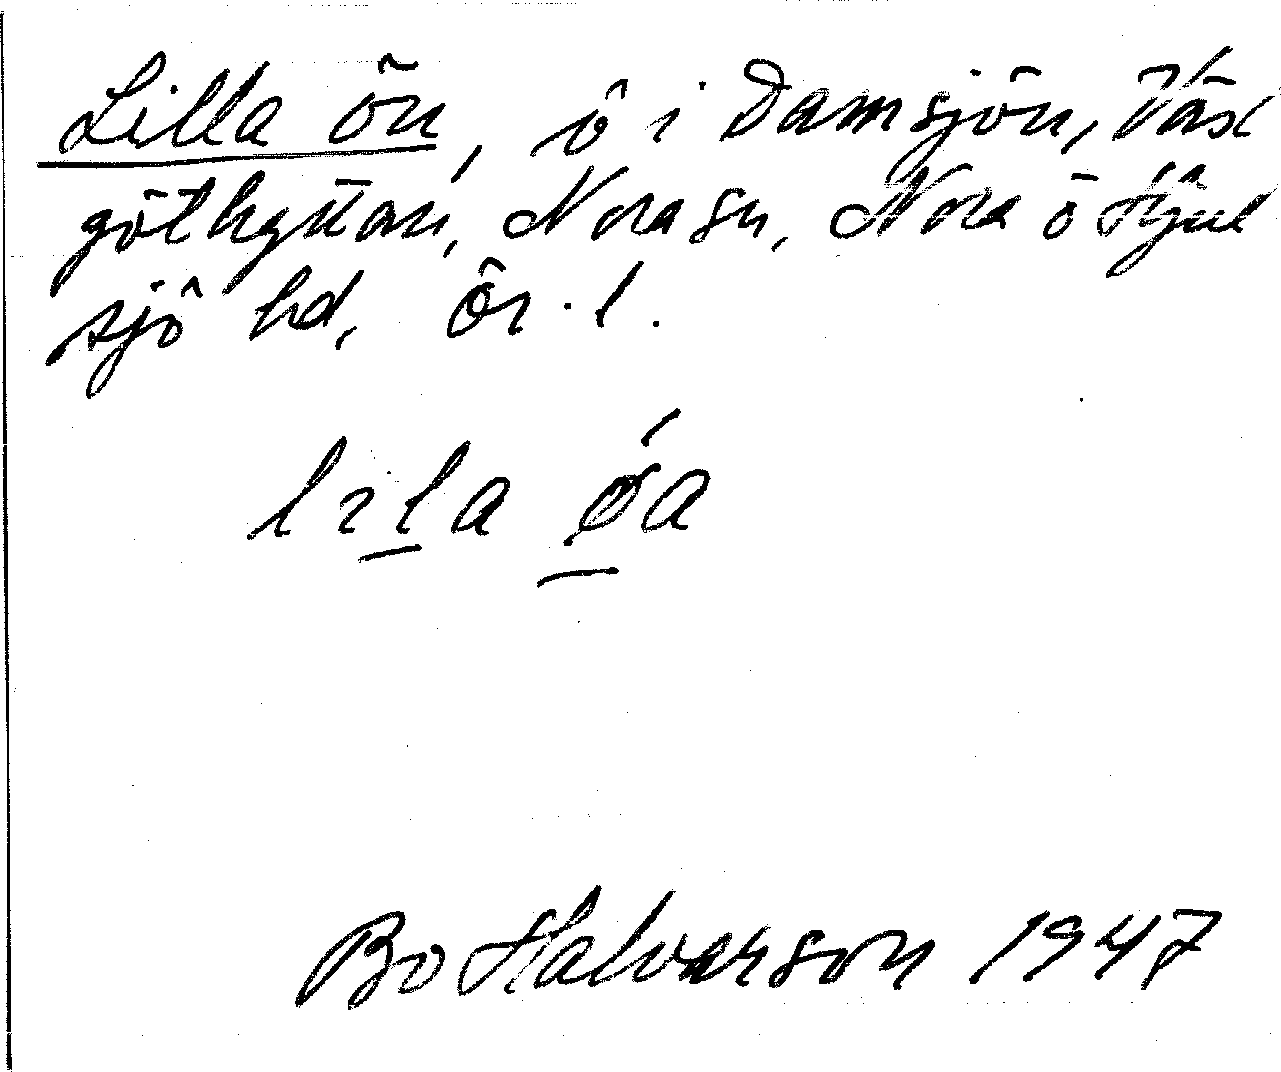 Lilla ön, ö i Damsjön, Väst
göthyttan, Nora sn, Nora o Hjul
sjö hd, Ör. l.
lila øa
Bo Halvarson 1947